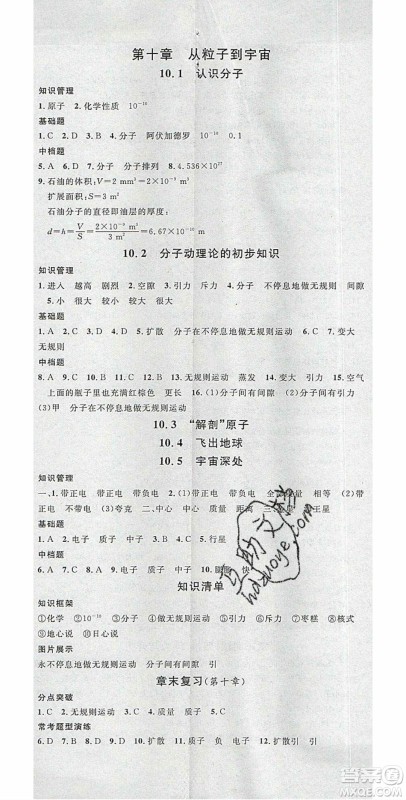 第十章 从粒子到宇宙
10.1 认识分子
知识管理
1.原子 2.化学性质 10⁻¹⁰
基础题
1.C 2.D 3.B 4.分子 阿伏加德罗 10⁻¹⁰ 0.1
中档题
5.A 6.D 7.分子 分子排列 8.4.536×10²⁷
9.石油的体积:V=2 mm³=2×10⁻⁹ m³
扩展面积:S=3 m²
石油分子的直径即油层的厚度:
d=h=V/S=2×10⁻⁹ m³/3 m²=6.67×10⁻¹⁰ m
10.2 分子动理论的初步知识
知识管理
1.进入 越高 剧烈 2.空隙 3.引力 斥力 4.不停息地做无规则 间隙
5.小 很小 较小 较大 很大
基础题
1.C 2.B 3.D 4.B 5.扩散 分子在不停息地做无规则运动 6.C 7.变大
无规则
中档题
8.A 9.C 10.B 11.A 12.C 13.无规则运动 蒸发 14.变大 引力 15.空气
上面的瓶子里不是均匀充满红棕色 更长 16.(1)分子间有间隙 (2)分子间有间隙
(3)甲 分子在不停息地做无规则运动
10.3 “解剖”原子
10.4 飞出地球
10.5 宇宙深处
知识管理
一、1.带正电 带负电 2.带负电 带正电 带正电
正电 不带电 (3)夸克 二、中心 质量 距离
基础题
1.A 2.B 3.A 4.D 5.电子 质子 中子 6.D 7.C 8.D 9.行星
中档题
10.C 11.D 12.D 13.质子 中子 电子 14.原子
知识清单
知识框架
①化学 ②10⁻¹⁰ ③分子 ④做无规则运动 ⑤引力 ⑥斥力 ⑦枣糕 ⑧核式
⑨地心说 ⑩日心说
图片展示
永不停息地做无规则运动 分子间有间隙 引
章末复习(第十章)
分点突破
1.C 2.C 3.B 4.扩散 无规则运动 斥力 5.C
常考题型演练
6.D 7.D 8.D 9.D 10.扩散 11.质子 负 电子 12.扩散 引
互助文档
hdzuoye.com
答案圈
MXQE.COM